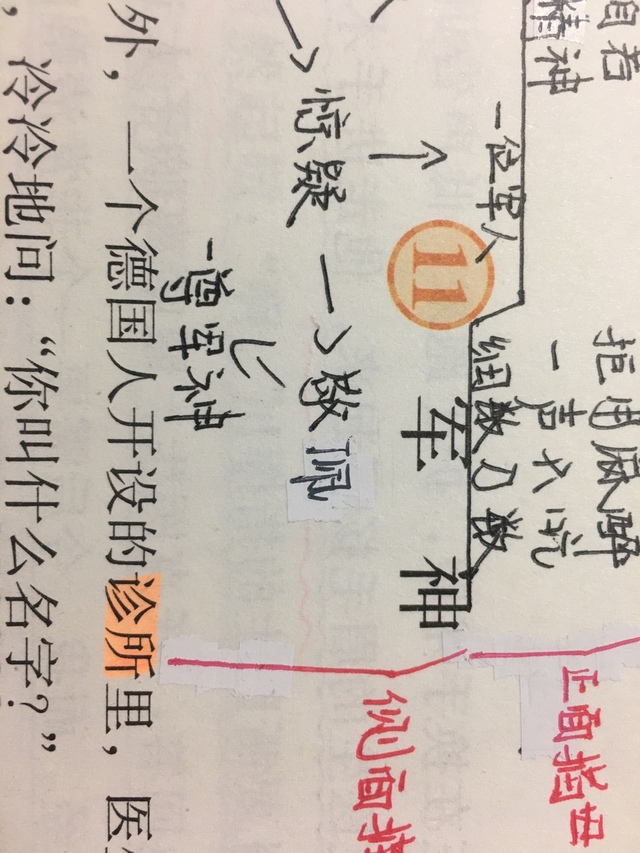 自若 拒用麻醉
精神 一声不吭
正面描写
一位军人 细数刀数
11 军神
侧面描
惊疑 → 敬佩
一尊军神
外，一个德国人开设的诊所里，医
，冷冷地问：“你叫什么名字？”